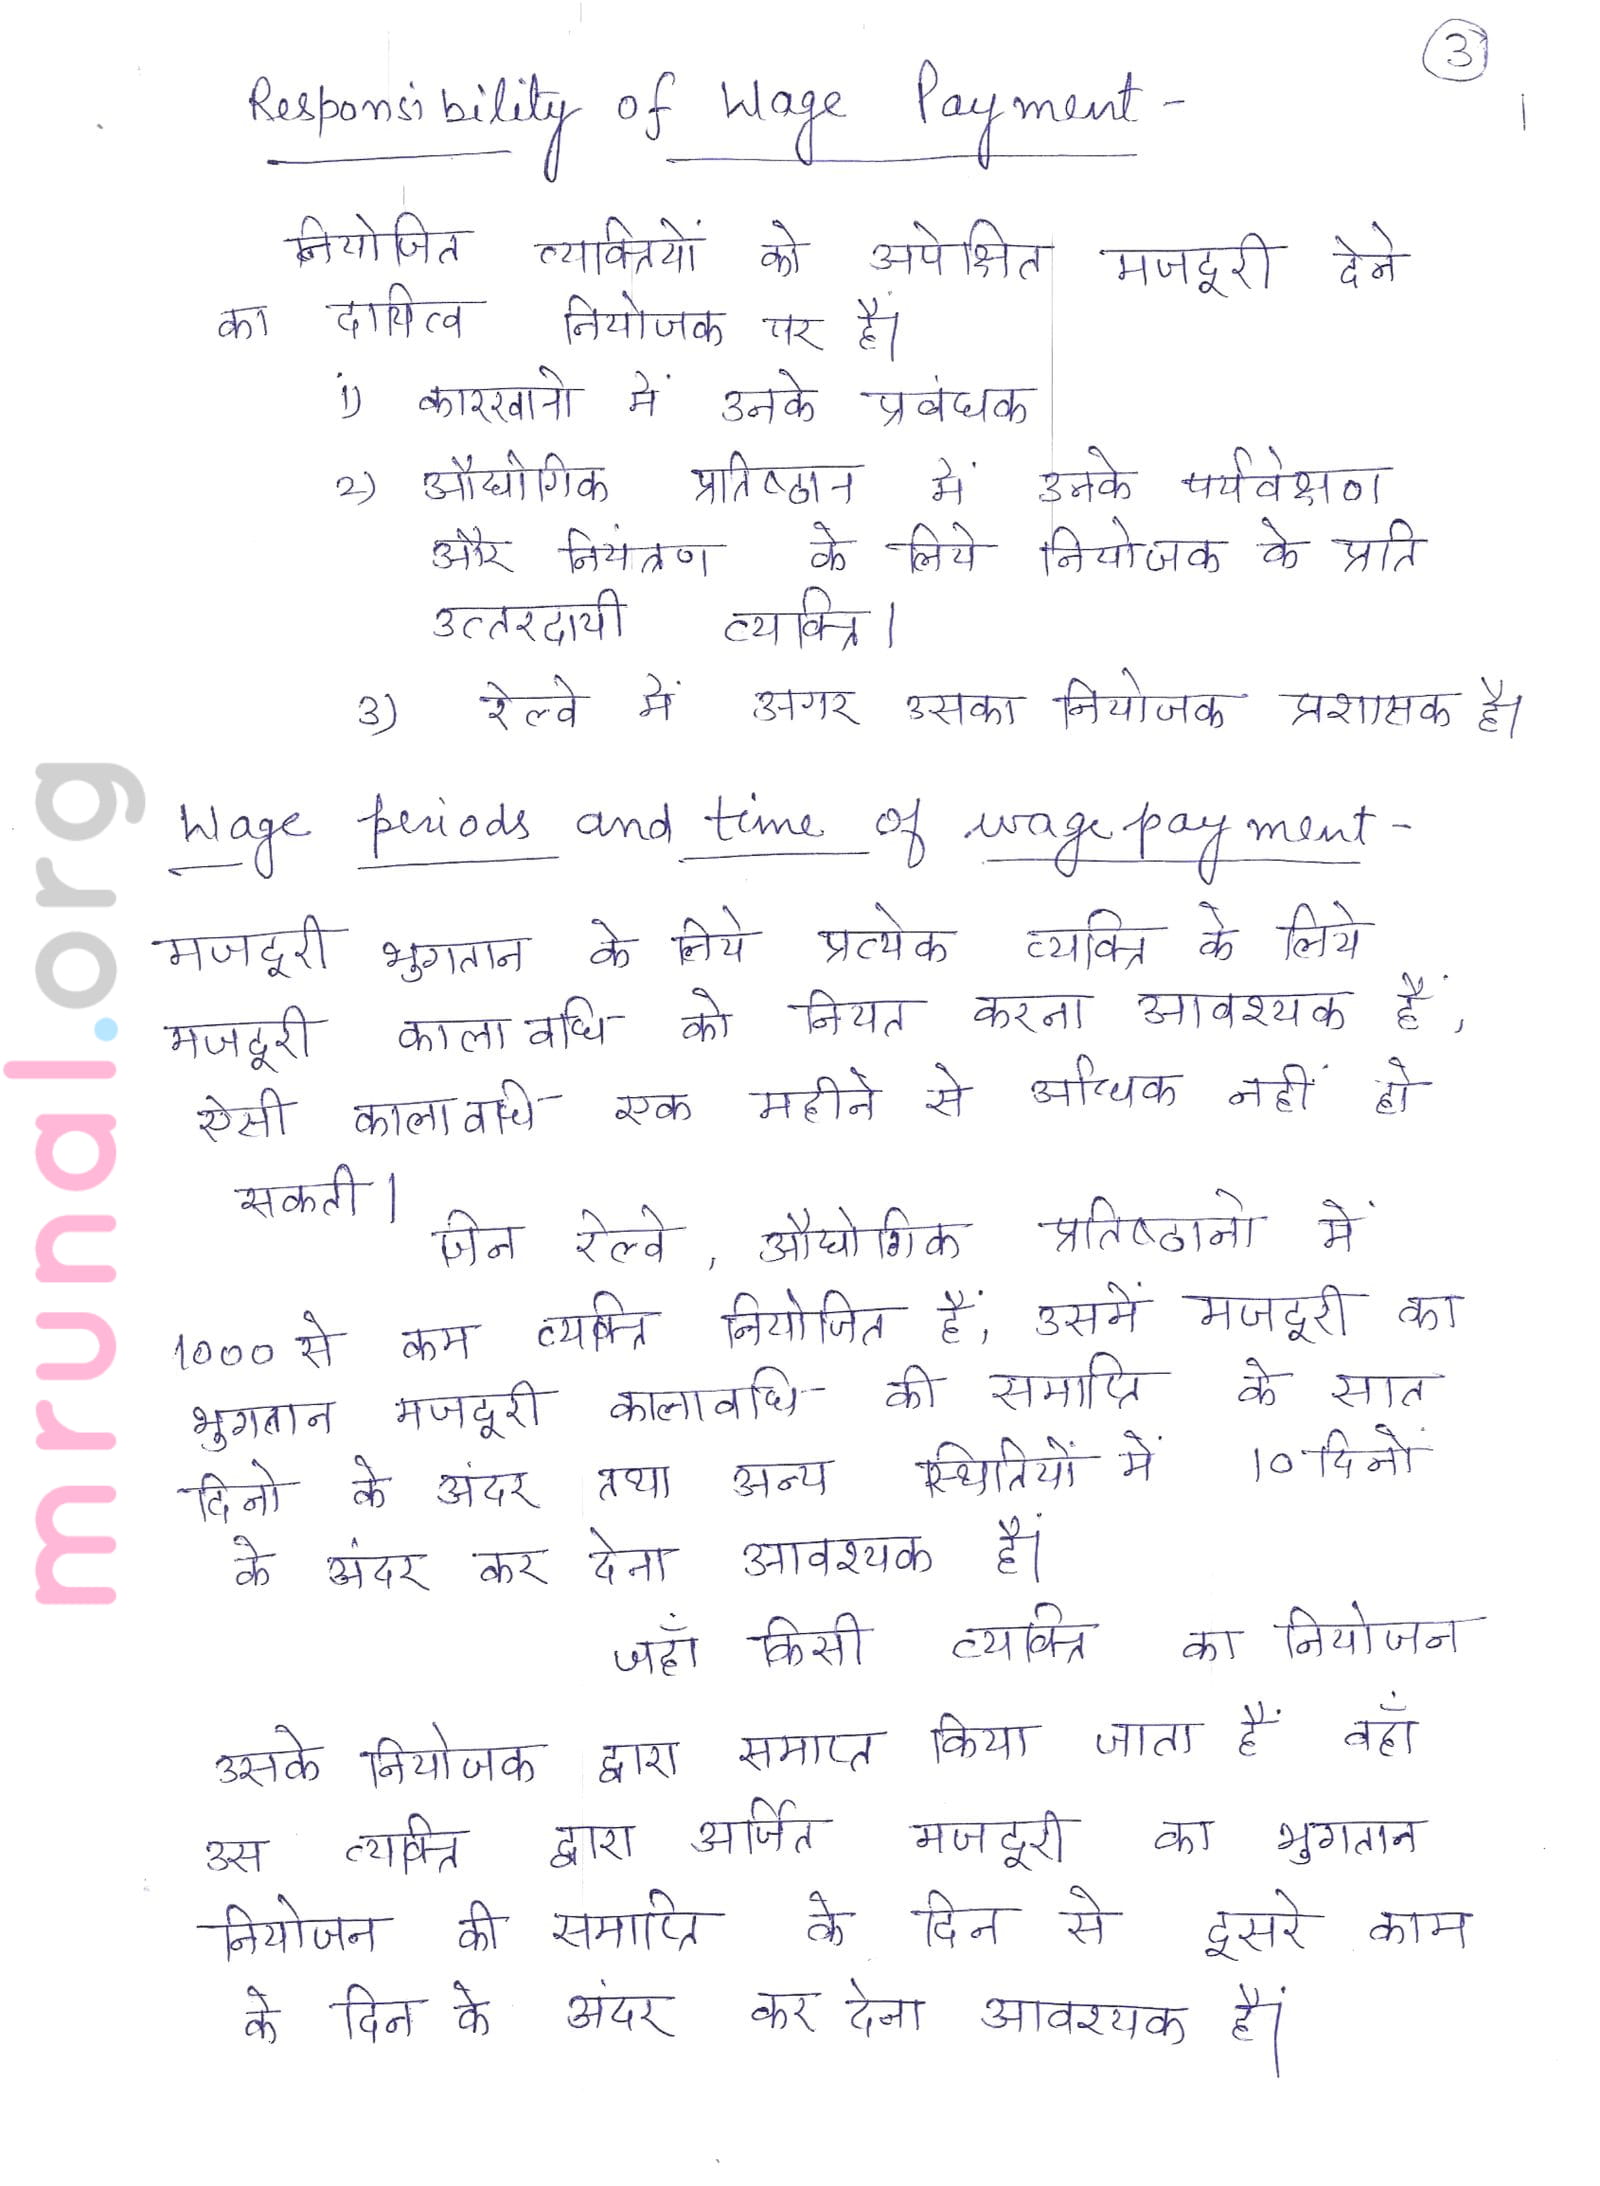 3
Responsibility of Wage Payment -
नियोजित व्यक्तियों को अपेक्षित मजदूरी देने
का दायित्व नियोजक पर हैं।
1) कारखानो में उनके प्रबंधक
2) औद्योगिक प्रतिष्ठान में उनके पर्यवेक्षण
और नियंत्रण के लिये नियोजक के प्रति
उत्तरदायी व्यक्ति।
3) रेल्वे में अगर उसका नियोजक प्रशासक है।
Wage periods and time of wage payment -
मजदूरी भुगतान के लिये प्रत्येक व्यक्ति के लिये
मजदूरी कालावधि को नियत करना आवश्यक हैं,
ऐसी कालावधि एक महीने से अधिक नहीं हो
सकती।
जिन रेल्वे, औद्योगिक प्रतिष्ठानो में
1000 से कम व्यक्ति नियोजित हैं, उसमें मजदूरी का
भुगतान मजदूरी कालावधि की समाप्ति के सात
दिनो के अंदर तथा अन्य स्थितियों में 10 दिनों
के अंदर कर देना आवश्यक हैं।
जहाँ किसी व्यक्ति का नियोजन
उसके नियोजक द्वारा समाप्त किया जाता हैं वहाँ
उस व्यक्ति द्वारा अर्जित मजदूरी का भुगतान
नियोजन की समाप्ति के दिन से दूसरे काम
के दिन के अंदर कर देना आवश्यक हैं।
mrunal.org